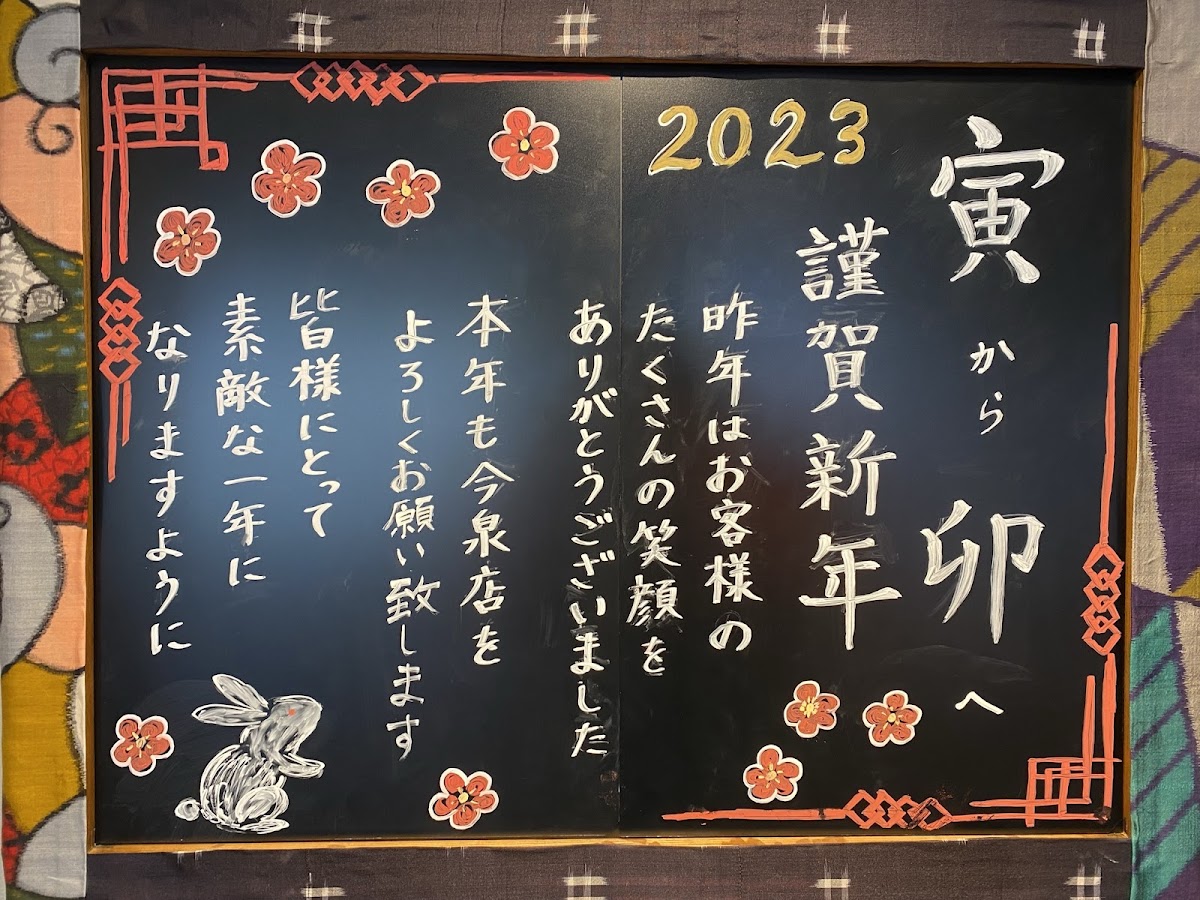 寅から卯へ
2023
謹賀新年
昨年はお客様の
たくさんの笑顔を
ありがとうございました
本年も今泉店を
よろしくお願い致します
皆様にとって
素敵な一年に
なりますように